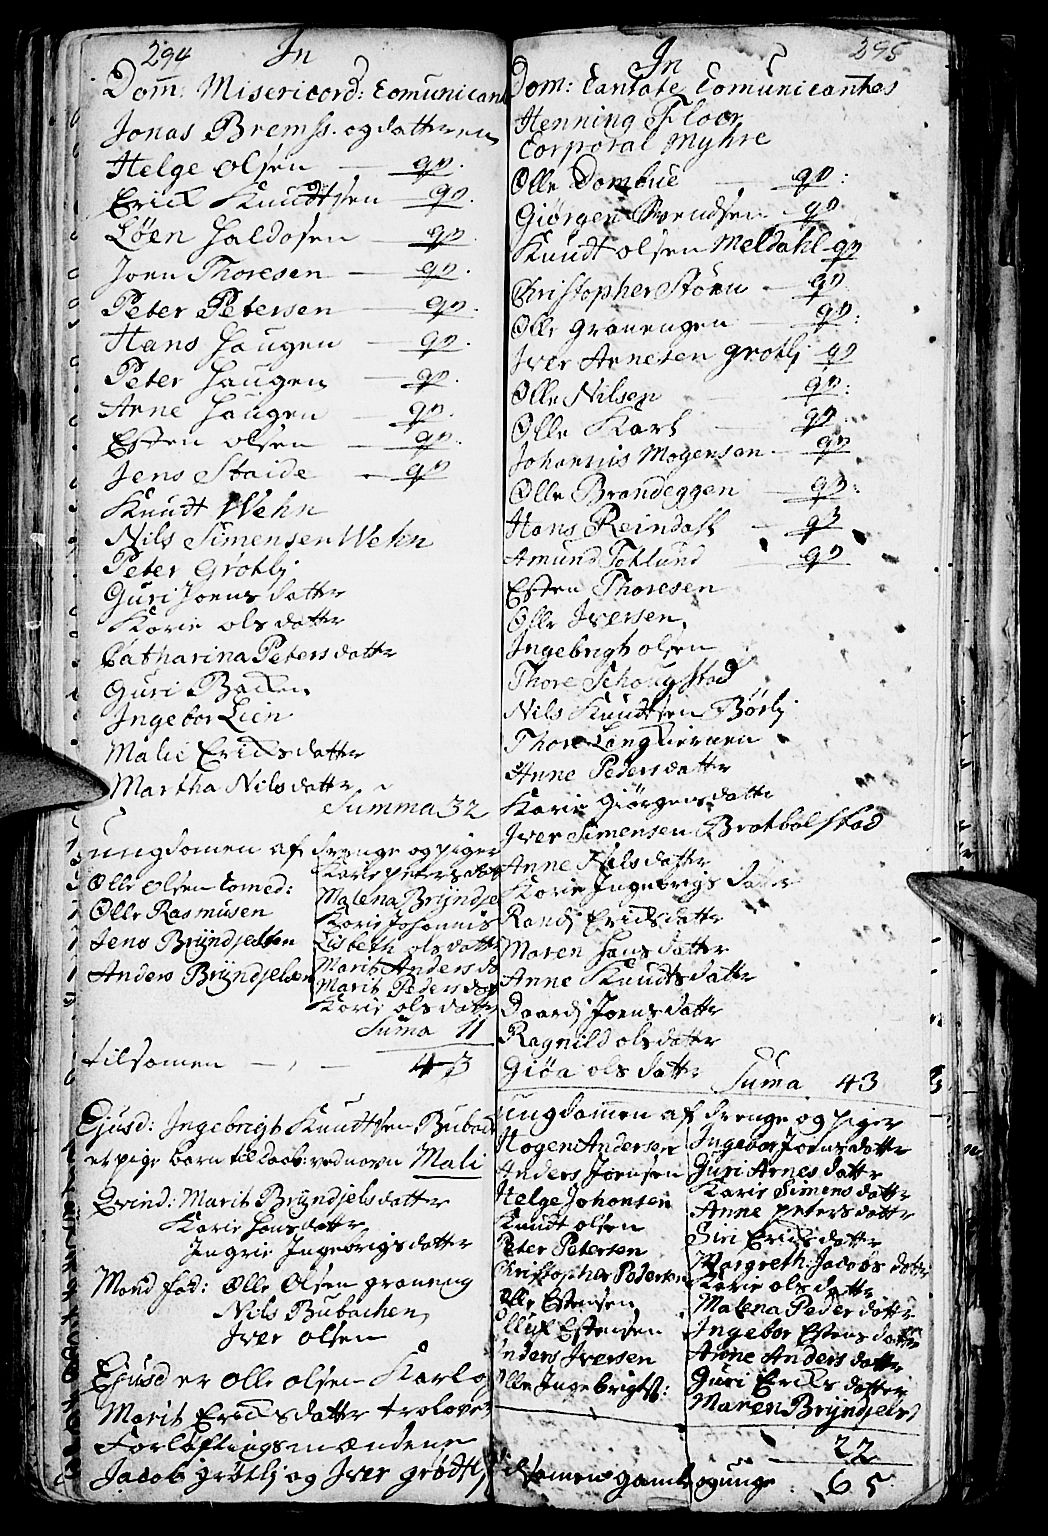 294
In
Dom: Misericord: Comunicant
Jonas Bremss. og datteren
Helge olsen — qv.
Erick Knudtsen — qv.
Løen Haldosen — qv.
Joen Thoresen — qv.
Peter Petersen — qv.
Hans Haugen — qv.
Peter Haugen — qv.
Arne Haugen — qv.
Esten olsen — qv.
Jens Staide — qv
Knudt Wehn
Nils Simensen Wehn
Peter Grøtlj.
Guri Joens datter
Karie ols datter
Catharina Peters datter
Guri Backen
Ingebor Lien
Malie Ericksdatter
Martha Nilsdatter
Summa 32
ungdomen af drenge og piger
Olle Olsen Comed:
Olle Rasmusen
Jens Bryndjelsen
Anders Bryndjelsen
Karie Petersdat
Malena Bryndje
Karie Johannis
Lisbeth olsdatte
Marit Anders da
Marit Peders dat
Karie olsdatter
Suma 11
tilsomen — , — 43
Ejusd: Ingebrigt Knudtsen Bubach
et pige barn til daab: ved navn Mali
Qvind: Marit Bryndjelsdatter
Karie Hansdatter
Ingrie Ingebrigsdatter
Mand fad: Olle Olsen graneng
Nils Bubachen
Iver olsen
Ejusd er olle olsen Karl og
Marit Ericksdatter trolovet
Forløftingsmændene
Jacob grøtlj og Iver grødtlj
295
In
Dom: Cantate Comunicantes
Henning Floor
Corporal Myhre
Olle Dombue — qv:
Giørgen Svendsen — qv
Knudt olsen Meldahl qv
Christopher Støen — qv
Olle Granengen — qv:
Iver Arnesen grøtlj qv
Olle Nilsen — qv:
Olle Karl — qv.
Johannis Mogensen — qv
Olle Brandeggen — q3:
Hans Reindahl — q3
Amund Toklund qv
Esten Thoresen
Olle Iversen
Ingebrigt olsen
Thore Schougstad
Nils Knudtsen Børlj
Thore Langkiernen
Anne Pedersdatter
Karie Giørgensdatter
Iver Simensen Bratbolstad
Anne Nilsdatter
Karie Ingebrigs datter
Randj Ericksdatter
Maren Hansdatter
Anne Knudtsdatter
Daardj Joensdatter
Ragnild olsdatter
Giøa olsdatter
Suma 43
ungdommen af drenge og piger
Hogen Andersen
Anders Joensen
Helge Johansen
Knudt olsen
Peter Petersen
Christopher Pedersen
Olle Estensen
Olluf Estensen
Anders Iversen
Olle Ingebrigts:
Ingebor Joensdatter
Guri Arnes datter
Karie Simens datter
Anne Petersdatter
Siri Ericksdatter
Margreth: Jacobs datter
Karie olsdatter
Malena Peder datter
Ingebor Estens datter
Anne Anders datter
Guri Ericks datter
Maren Bryndjels d
22
tilsomen gamle og unge 65